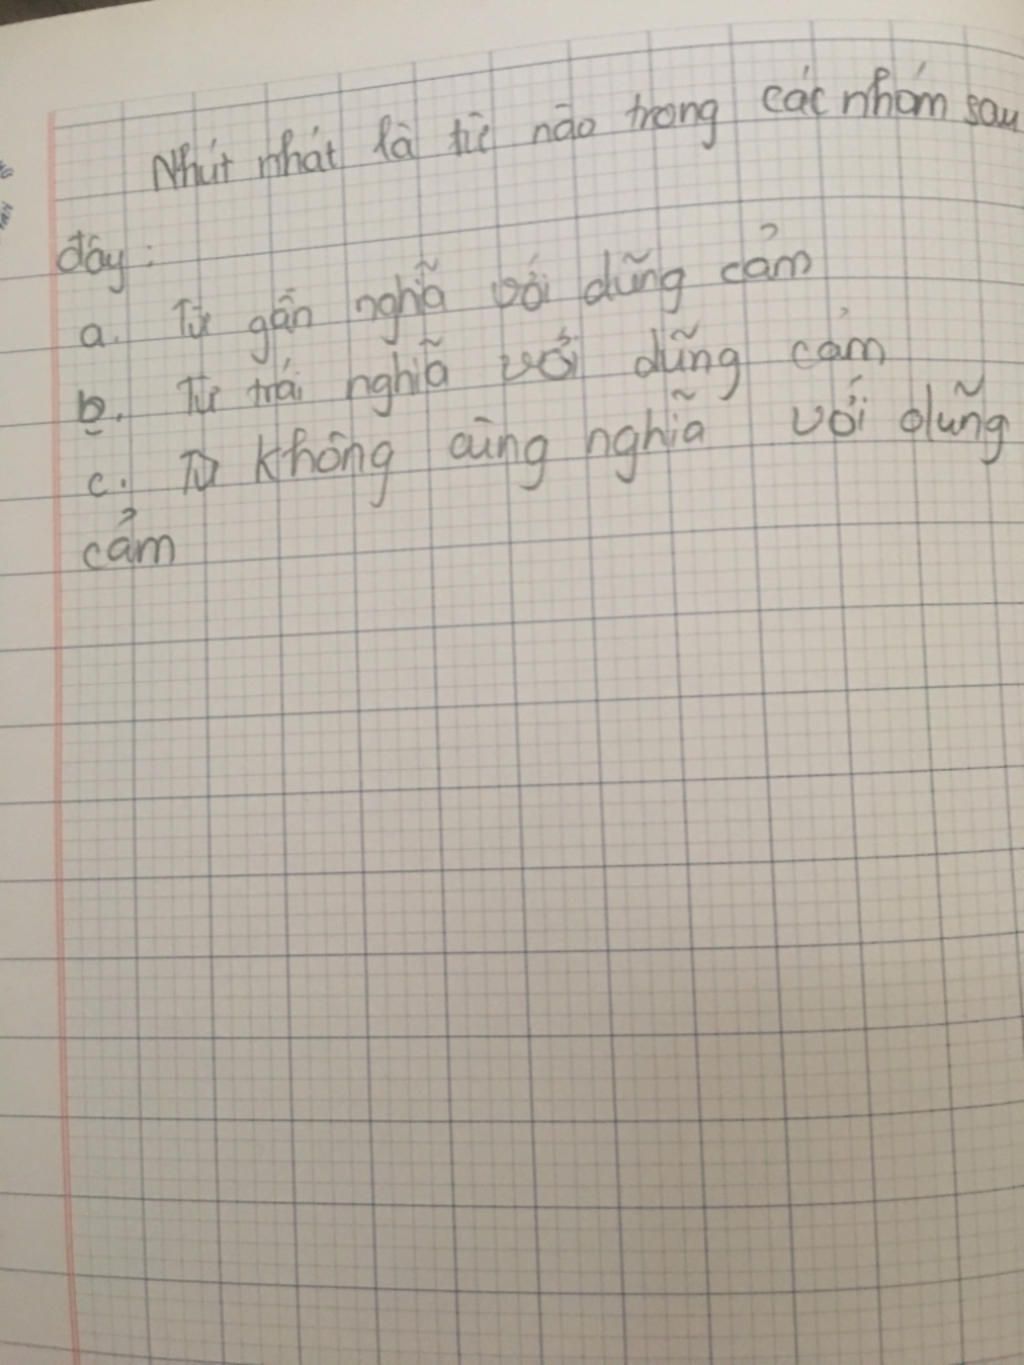 Nhút nhát là từ nào trong các nhóm sau
đây:
a. Từ gần nghĩa với dũng cảm
b. Từ trái nghĩa với dũng cảm
c. Từ không cùng nghĩa với dũng
cảm